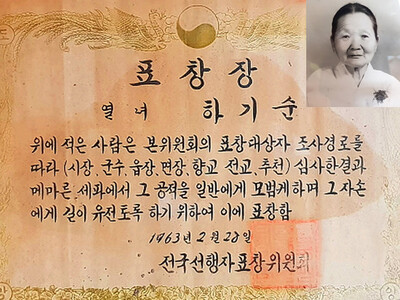 표창장
열녀 하기순
위에 적은 사람은 본위원회의 표창대상자 조사경로를
따라 (시장·군수·읍장·면장·향교 전교·추천) 심사한결과
메마른 세파에서 그 공적을 일반에게 모범게하며 그 자손
에게 길이 유전토록 하기 위하여 이에 표창함
1963년 2월 28일
전국선행자표창위원회